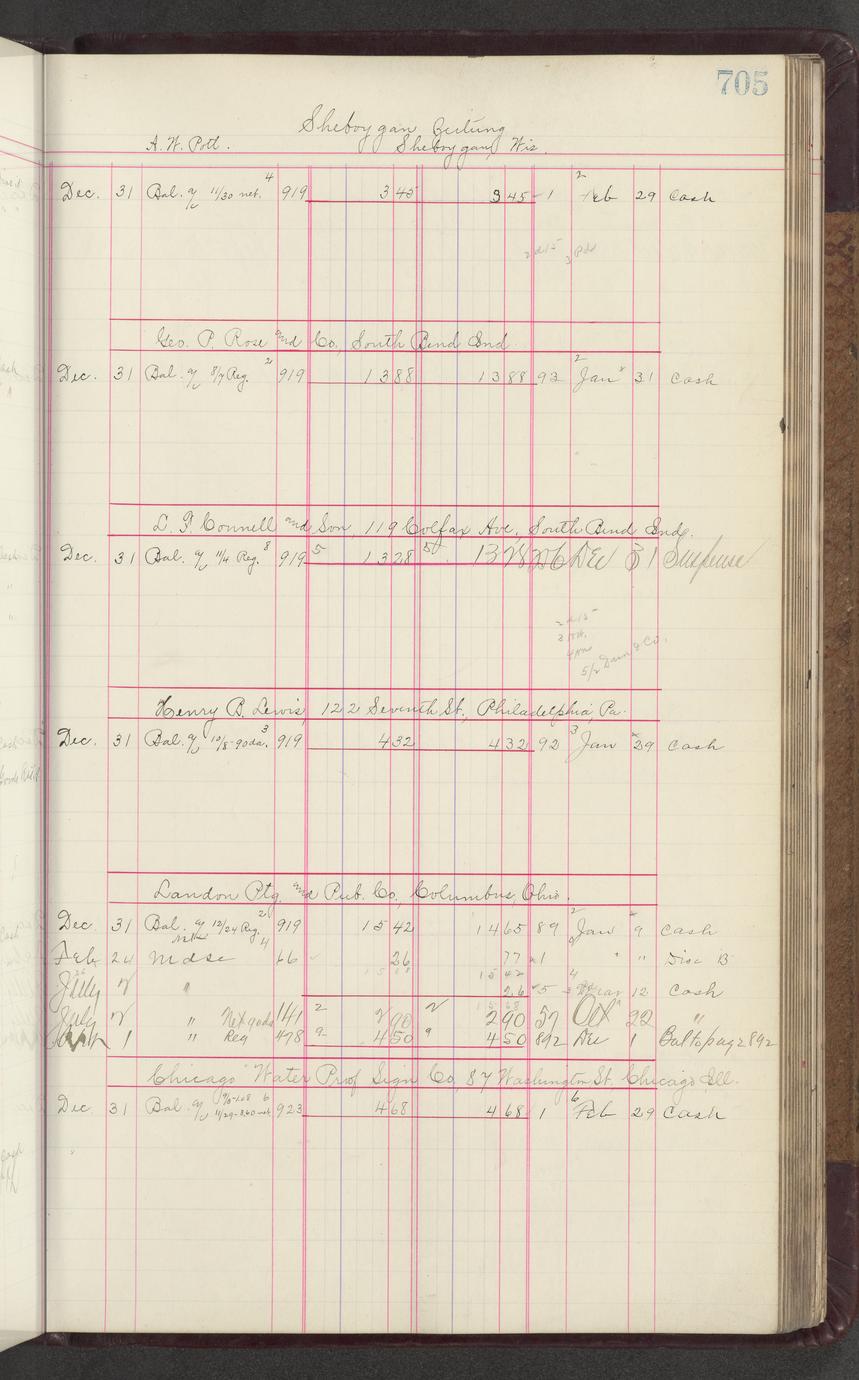 705
Sheboygan Zeitung
A. W. Pott. Sheboygan, Wis.
Dec. 31 Bal. % 11/30 net. 4 919 3 45 3 45 1 2 Feb 29 Cash
2 d 15 3 Pdd
Geo. P. Rose and Co, South Bend Ind
Dec. 31 Bal. % 8/7 Reg. 2 919 13 88 13 88 93 2 Jan 31 Cash
L. F. Connell and Son, 119 Colfax Ave, South Bend Ind.
Dec. 31 Bal. % 11/4 Reg. 8 919 5 13 28 5 13 28 Dec 31 Suspense
2 d 15
5/2 Dunn & Co.
Henry B. Lewis, 122 Seventh St., Philadelphia, Pa.
Dec. 31 Bal. % 10/8-90da. 3 919 4 32 4 32 92 3 Jan 29 Cash
Landon Ptg. and Pub. Co, Columbus, Ohio.
Dec 31 Bal. % 12/24 Reg. 2 919 15 42 14 65 89 2 Jan 9 Cash
Feb 24 Mdse 4 66 26 77 1 " " Disc B
15 42
July 2 " 26 5 Mar 12 Cash
July 2 " Net gods 141 2 2 90 2 2 90 57 Oct 22 "
1 " Reg 478 9 4 50 9 4 50 892 Dec 1 Bal to page 892
Chicago Water Proof Sign Co, 87 Washington St. Chicago Ill.
Dec 31 Bal % 11/29-3.60 net 6 923 4 68 4 68 1 6 Feb 29 Cash